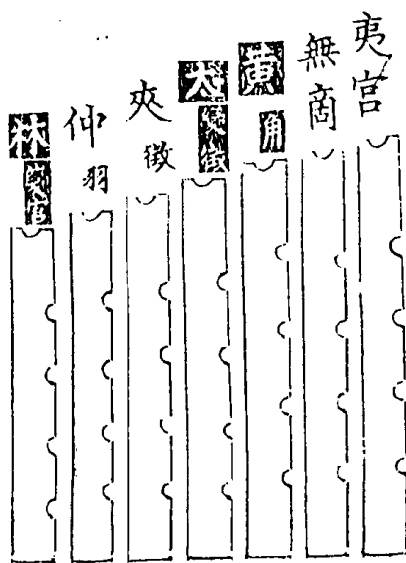 夷宫
無商
黄角
太變徴
夾徴
仲羽
林變宫